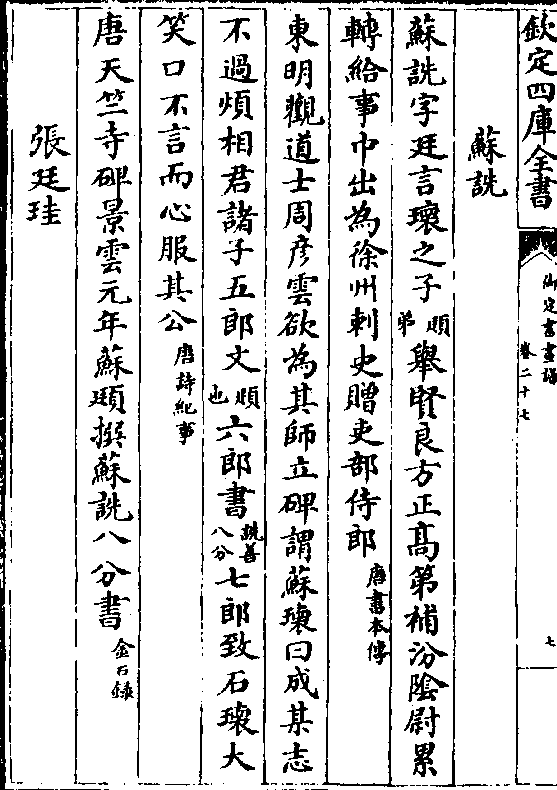 欽定四庫全書
御定書畫譜
卷二十七
七
蘇詵
蘇詵字廷言瓌之子頲弟舉賢良方正高第補汾陰尉累
轉給事中出為徐州刺史贈吏部侍郎唐書本傳
東明觀道士周彥雲欲為其師立碑謂蘇瓌曰成某志
不過煩相君諸子五郎文頲也六郎書詵善八分七郎致石瓌大
笑口不言而心服其公唐詩紀事
唐天竺寺碑景雲元年蘇頲撰蘇詵八分書金石錄
張廷珪